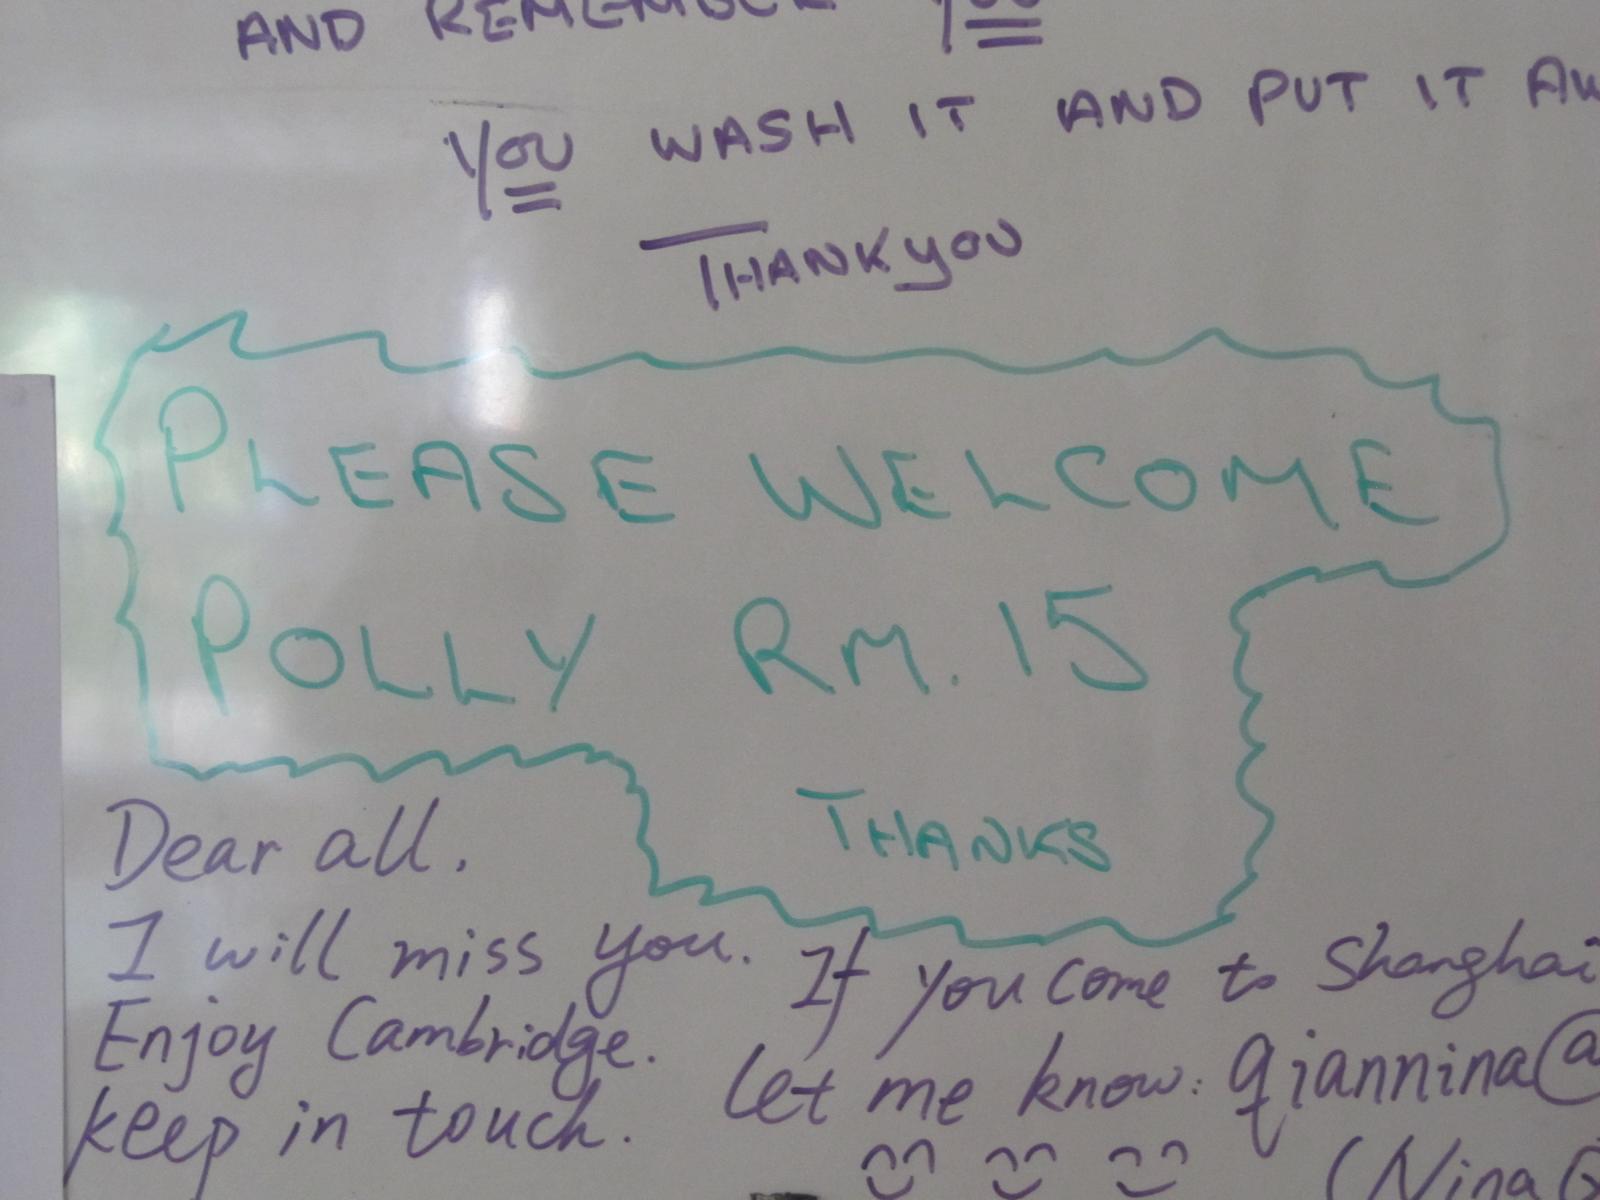 AND REMEMBER YOU
YOU WASH IT AND PUT IT
THANKYOU
PLEASE WELCOME
POLLY RM. 15
THANKS
Dear all.
I will miss you.
Enjoy Cambridge.
keep in touch.
If you come to Shanghai
let me know: qiannina@
(Nina